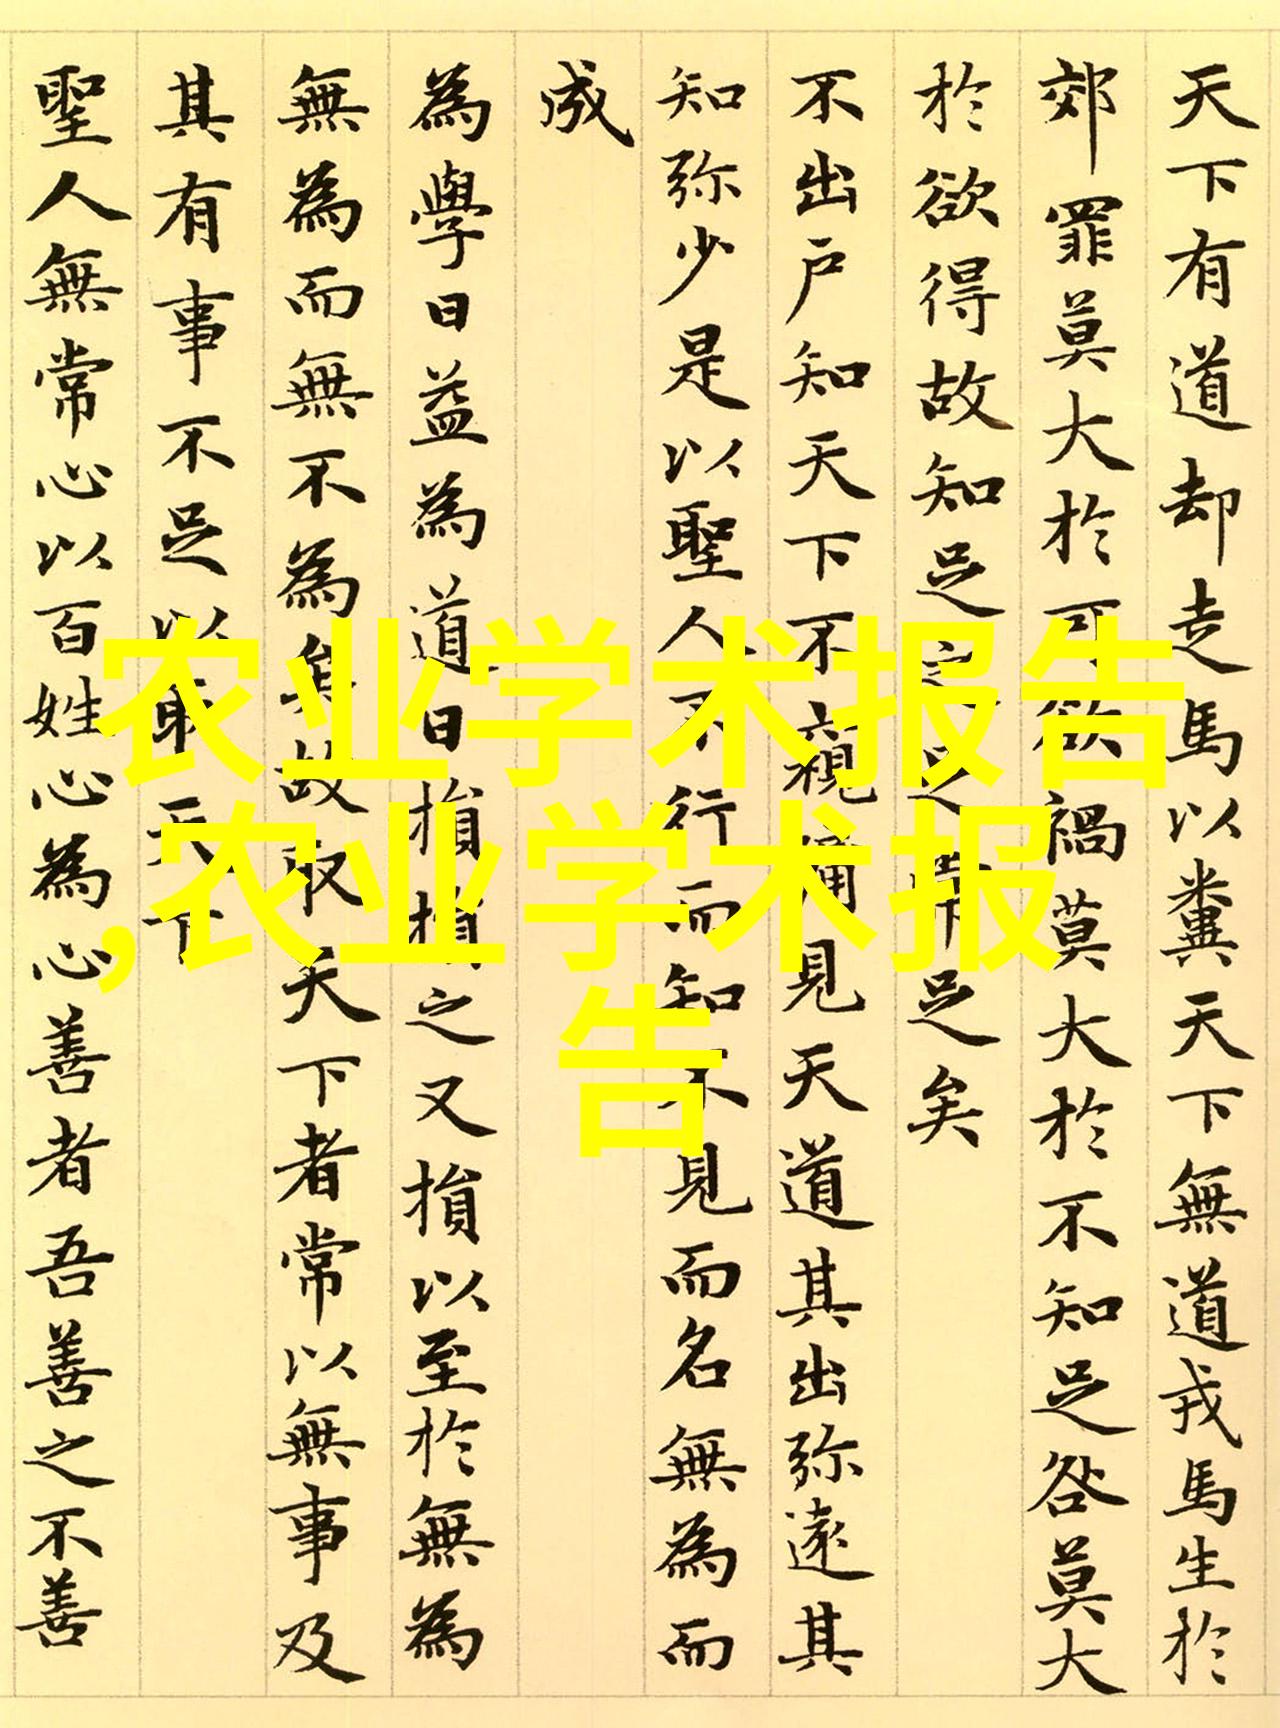 天下有道却走馬以糞天下無道戎馬生於
郊罪莫大於可欲禍莫大於不知足咎莫大
於欲得故知足之足常足矣
不出戶知天下不窺牖見天道其出弥遠其
知弥少是以聖人不行而知不見而名無為而
成
為學日益為道日損損之又損以至於無為
無為而無不為矣故取天下者常以無事及
其有事不足以取天下
聖人無常心以百姓心為心善者吾善之不善
农业学术报告
,农业学术报
告